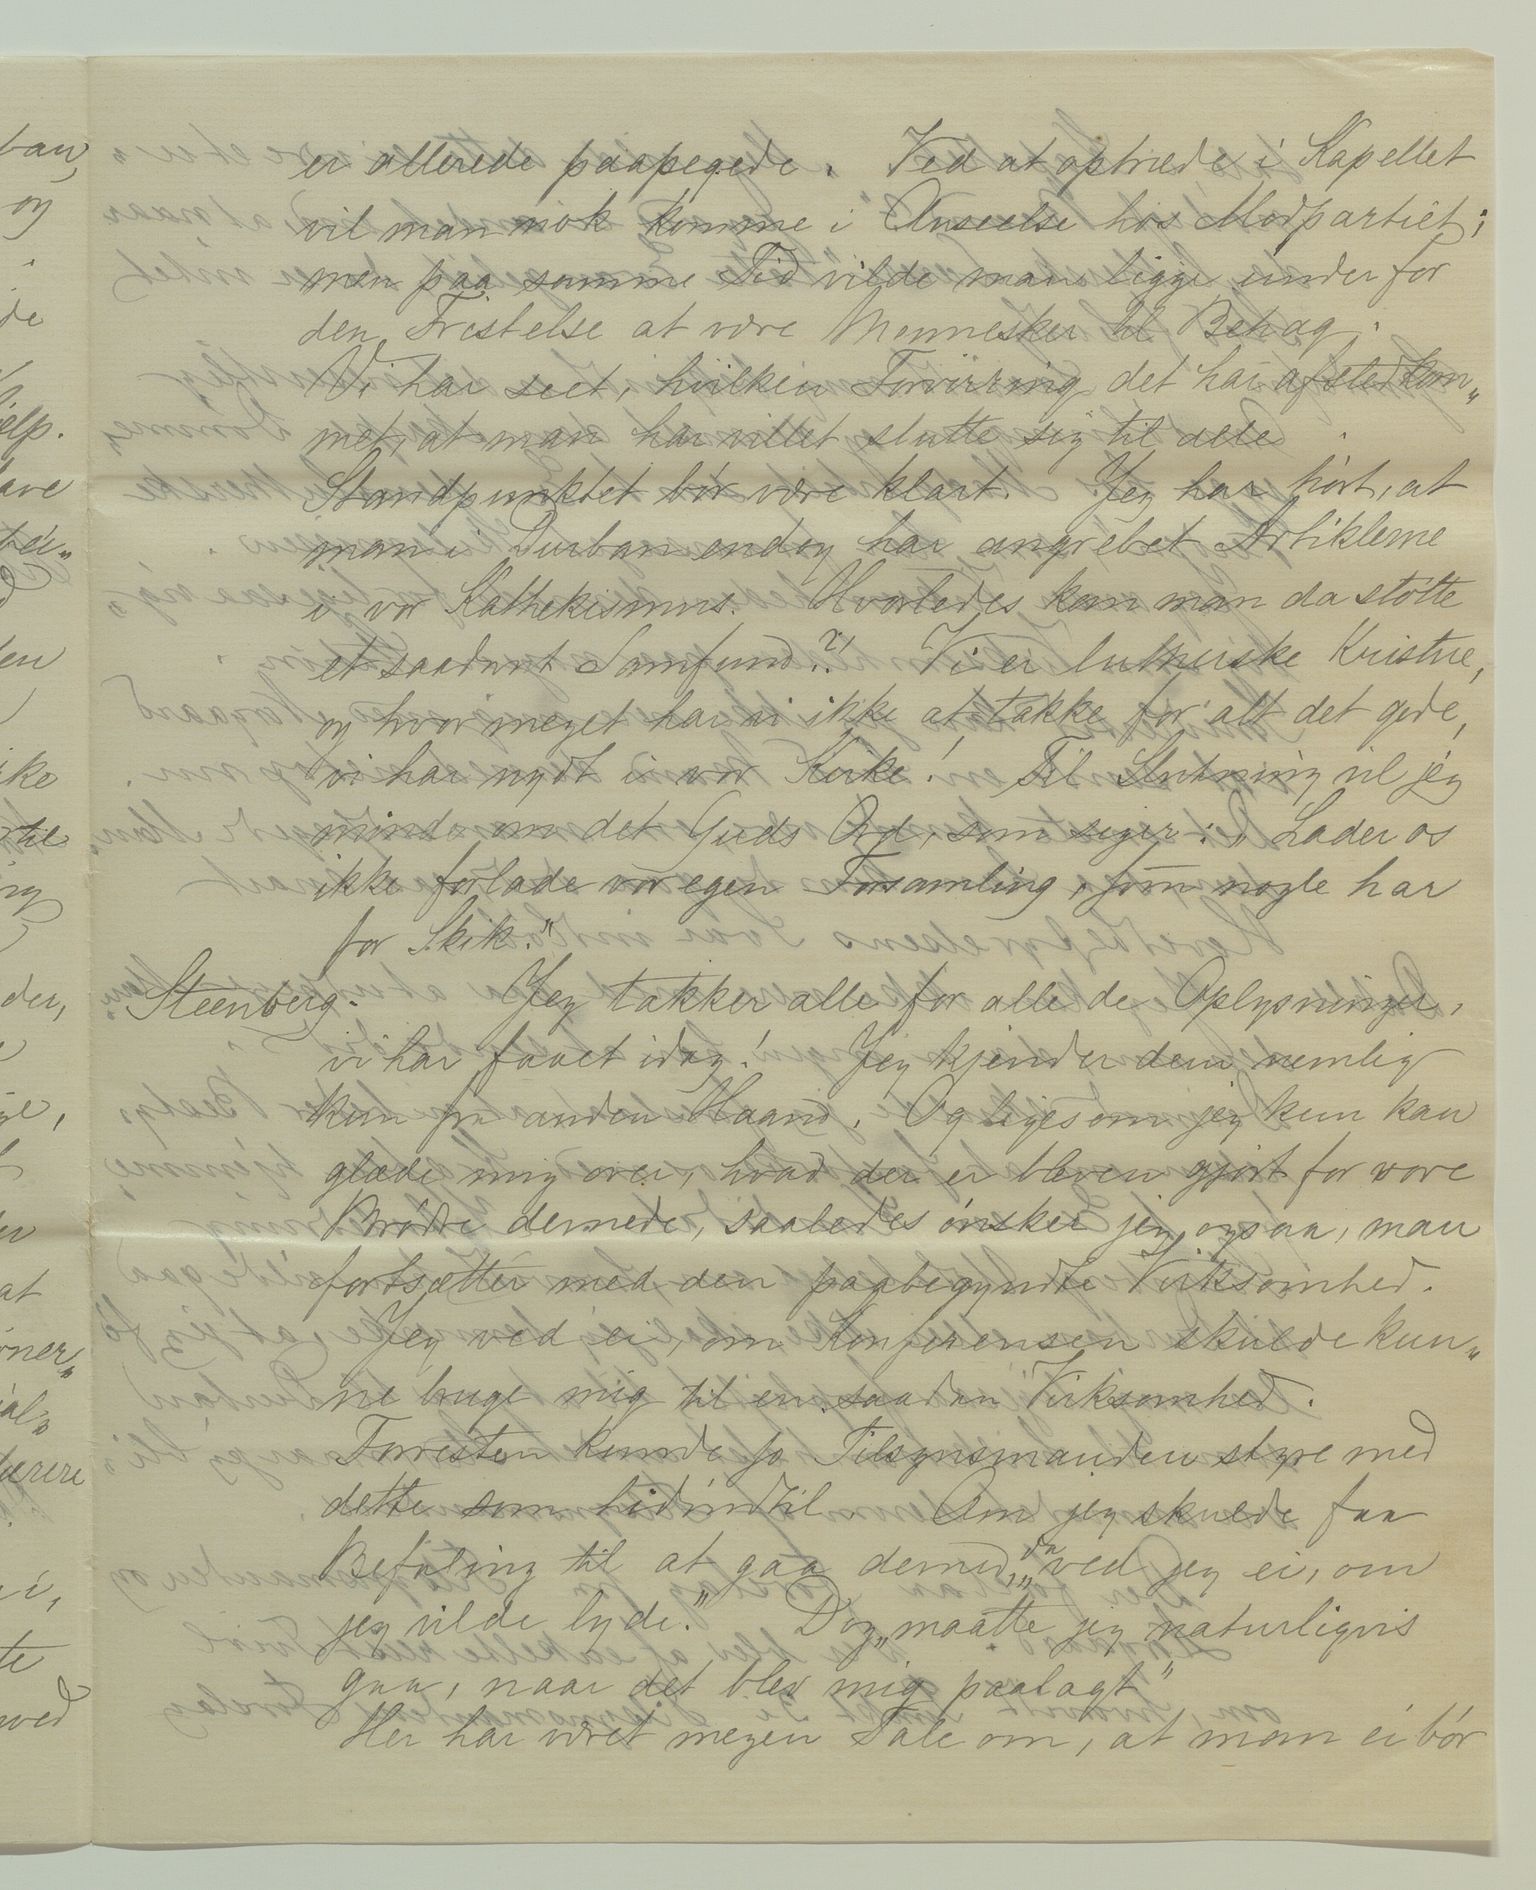 er allerede paapegede. Ved at optræde i Kapellet
vil man nok komme i Anseelse hos Modpartiet;
men paa samme Tid vilde man ligge under for
den Fristelse at være Mennesker til Behag.
Vi har seet, hvilken Forvirring det har afstedkom„
met, at man har villet slutte sig til dele.
Standpunktet bør være klart. Jeg har hørt, at
man i Durban endog har angrebet Artiklerne
i vor Kathekismus. Hvorledes kan man da støtte
et saadant Samfund?! Vi er lutherske Kristne,
og hvor meget har vi ikke at takke for alt det gode,
vi har nydt i vor Kirke! Til Slutning vil jeg
minde om det Guds Ord, som siger: „Lader os
ikke forlade vor egen Forsamling, som nogle har
for Skik."
Steenberg. Jeg takker alle for alle de Oplysninger,
vi har faaet idag! Jeg kjender dem nemlig
kun fra anden Haand. Og ligesom jeg kun kan
glæde mig over, hvad der er bleven gjort for vore
Brødre dernede, saaledes ønsker jeg ogsaa, man
fortsætter med den paabegyndte Virksomhed.
Jeg ved ei, om Konferensen skulde kun„
ne bruge mig til en saadan Virksomhed.
Forresten kunde jo Tilsynsmanden styre med
dette som hidindtil. Om jeg skulde faa
Befaling til at gaa derned, „da ved jeg ei, om
jeg vilde lyde." Dog „maatte jeg naturligvis
gaa, naar det blev mig paalagt"
Her har været megen Tale om, at man ei bør